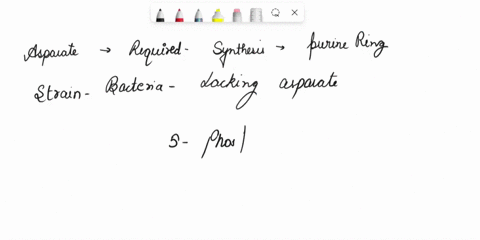 Asparate → Required - Synthesis → purine Ring
Strain - Bacteria - Lacking asparate
5 - phos